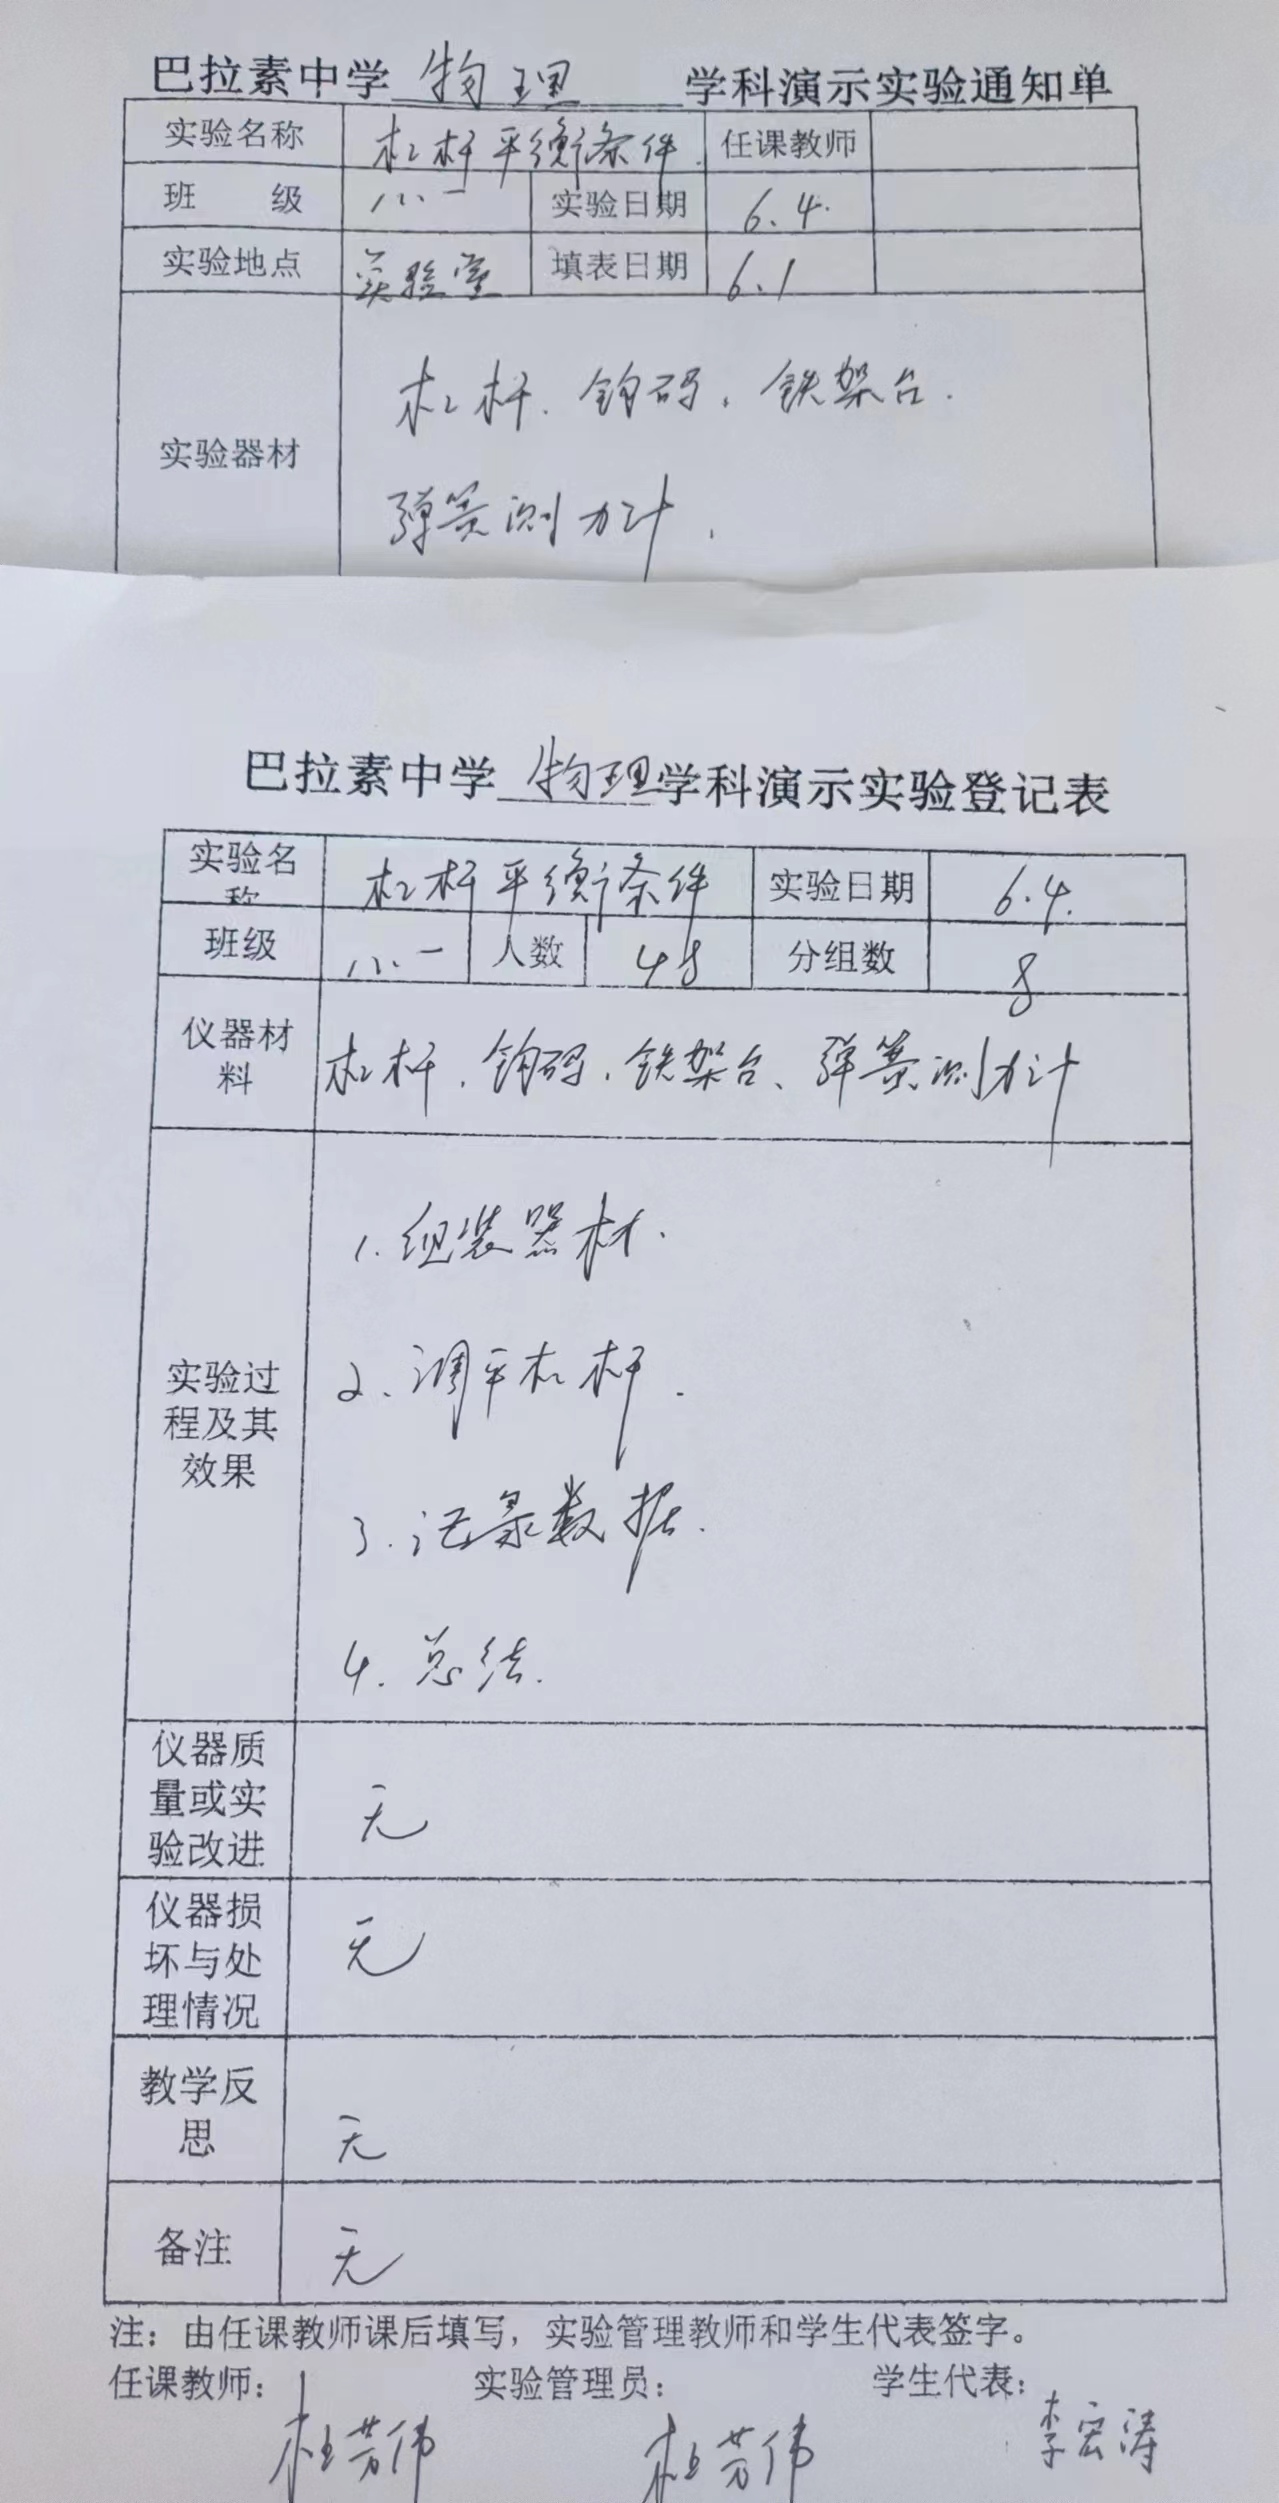 巴拉素中学 物理 学科演示实验通知单
实验名称 杠杆平衡条件 任课教师
班 级 八.一 实验日期 6.4.
实验地点 实验室 填表日期 6.1
实验器材
杠杆、钩码、铁架台.
弹簧测力计.
巴拉素中学 物理 学科演示实验登记表
实验名称 杠杆平衡条件 实验日期 6.4.
班级 八.一 人数 48 分组数 8
仪器材料 杠杆、钩码、铁架台、弹簧测力计
实验过程及其效果
1.组装器材.
2、调平杠杆.
3.记录数据.
4.总结.
仪器质量或实验改进 无
仪器损坏与处理情况 无
教学反思 无
备注 无
注：由任课教师课后填写，实验管理教师和学生代表签字。
任课教师： 实验管理员： 学生代表：
杜芳伟 杜芳伟 李宏涛